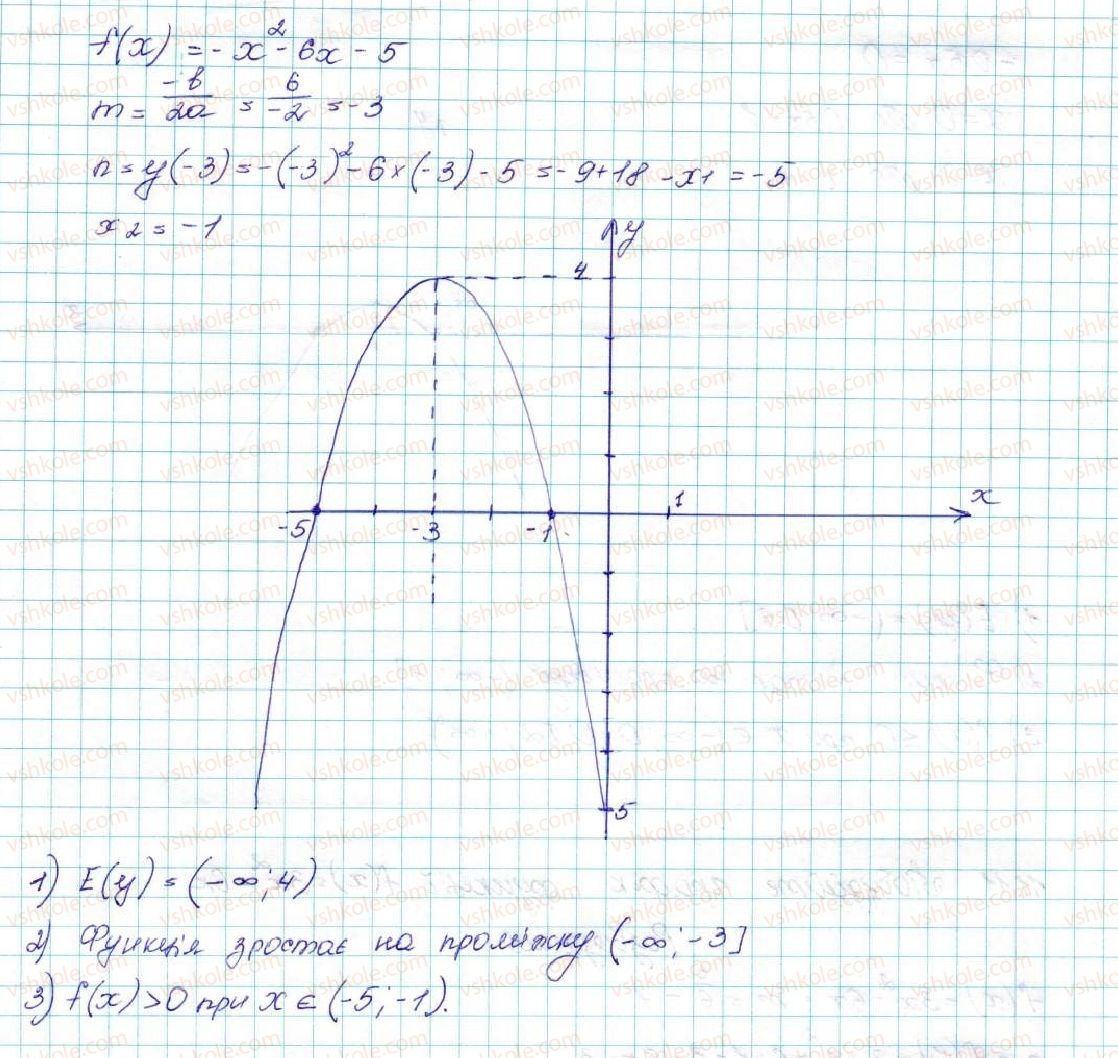 f(x) = -x² - 6x - 5
m = -b/2a = 6/-2 = -3
n = y(-3) = -(-3)² - 6×(-3) - 5 = -9+18 -x1 = -5
x2 = -1
y
4
1
x
-5
-3
-1
-5
1) E(y) = (-∞; 4)
2) Функція зростає на проміжку (-∞; -3]
3) f(x) > 0 при x ∈ (-5; -1).
vshkole.com